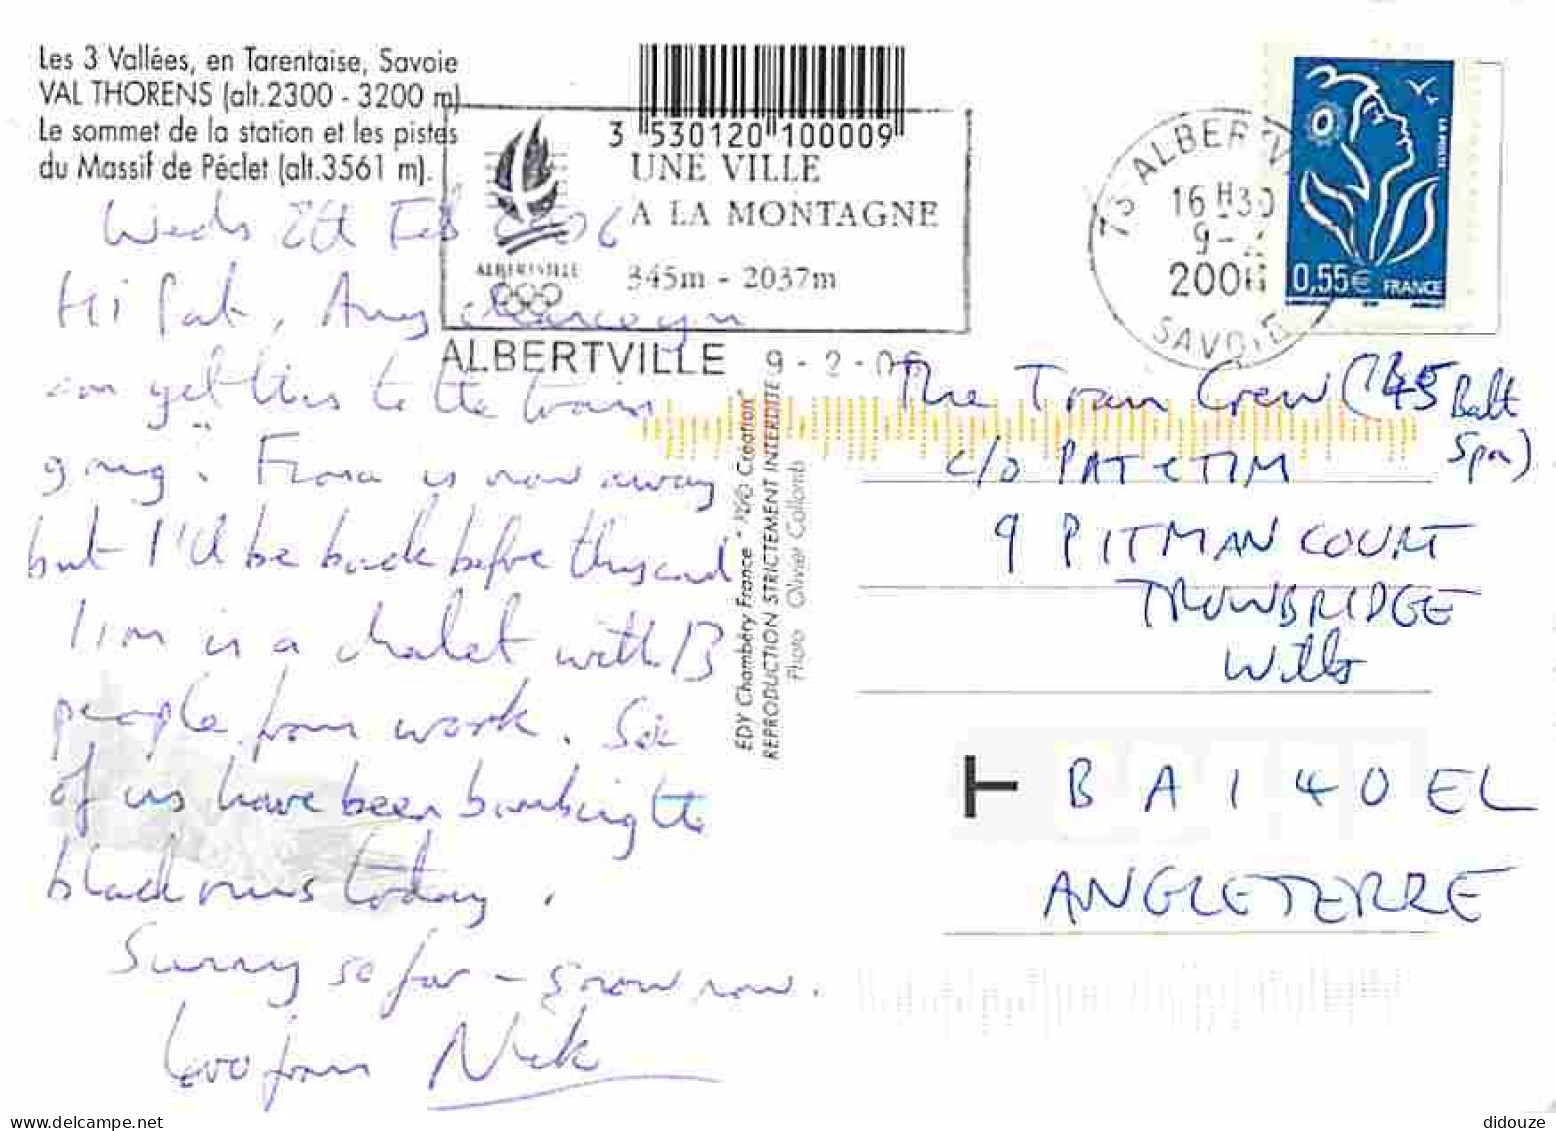 Les 3 Vallées, en Tarentaise, Savoie
VAL THORENS (alt.2300 - 3200 m)
Le sommet de la station et les pistes
du Massif de Péclet (alt.3561 m).
3 530120 100009
UNE VILLE
A LA MONTAGNE
345m - 2037m
ALBERTVILLE
ALBERTVILLE 9-2-06
73 ALBERTV
16 H30
9-2
2006
SAVOIE
LA POSTE
0,55€ FRANCE
Weds 8th Feb 2006
Hi Pat, Any chance you
can get this to the train
gang. Fiona is now away
but I'll be back before they and
Tim is a chalet with 13
people from work. Six
of us have been bombing the
black runs today.
Sunny so far - snow now.
Love from Nick
EDY Chambéry France " Création"
REPRODUCTION STRICTEMENT INTERDITE
Photo Olivier Collomb
The Train Crew (7.45 Balt
Spa)
c/o PAT & TIM
9 PITMAN COURT
TROWBRIDGE
Wilts
BA1 40EL
ANGLETERRE
didouze